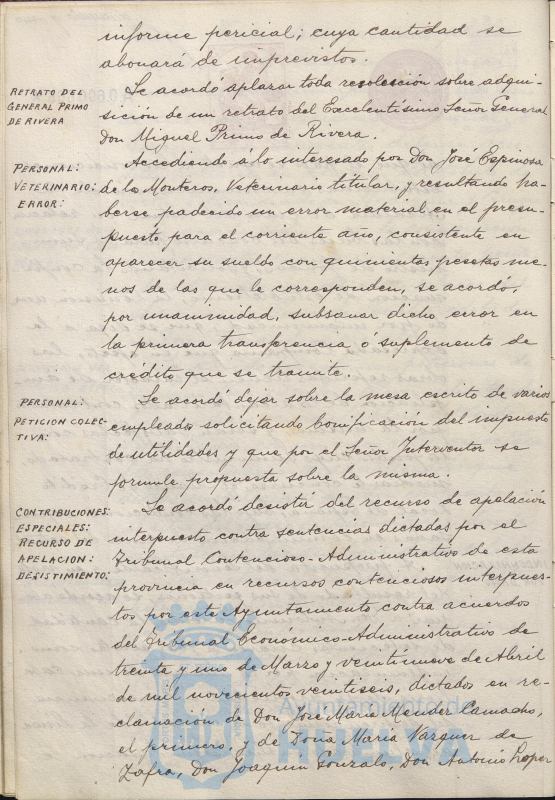 informe pericial; cuya cantidad se
abonará de imprevistos.
RETRATO DEL
GENERAL PRIMO
DE RIVERA
Se acordó aplazar toda resolución sobre adqui-
sición de un retrato del Excelentísimo Señor General
Don Miguel Primo de Rivera.
PERSONAL:
VETERINARIO:
ERROR:
Accediendo a lo interesado por Don José Espinosa
de los Monteros, Veterinario titular, y resultando ha-
berse padecido un error material en el presu-
puesto para el corriente año, consistente en
aparecer su sueldo con quinientas pesetas me-
nos de las que le corresponden, se acordó,
por unanimidad, subsanar dicho error en
la primera transferencia ó suplemento de
crédito que se tramite.
PERSONAL:
PETICION COLEC-
TIVA:
Se acordó dejar sobre la mesa escrito de varios
empleados solicitando bonificación del impuesto
de utilidades y que por el Señor Interventor se
formule propuesta sobre la misma.
CONTRIBUCIONES
ESPECIALES:
RECURSO DE
APELACION:
DESISTIMIENTO:
Se acordó desistir del recurso de apelación
interpuesto contra sentencias dictadas por el
Tribunal Contencioso-Administrativo de esta
provincia en recursos contenciosos interpues-
tos por este Ayuntamiento contra acuerdos
del Tribunal Económico-Administrativo de
treinta y uno de Marzo y veintinueve de Abril
de mil novecientos veintiseis, dictados en re-
clamación de Don José María Mendez Camacho,
el primero, y de Doña María Vazquez de
Zafra, Don Joaquin Gonzalo, Don Antonio Lopez
Ayuntamiento de
HUELVA